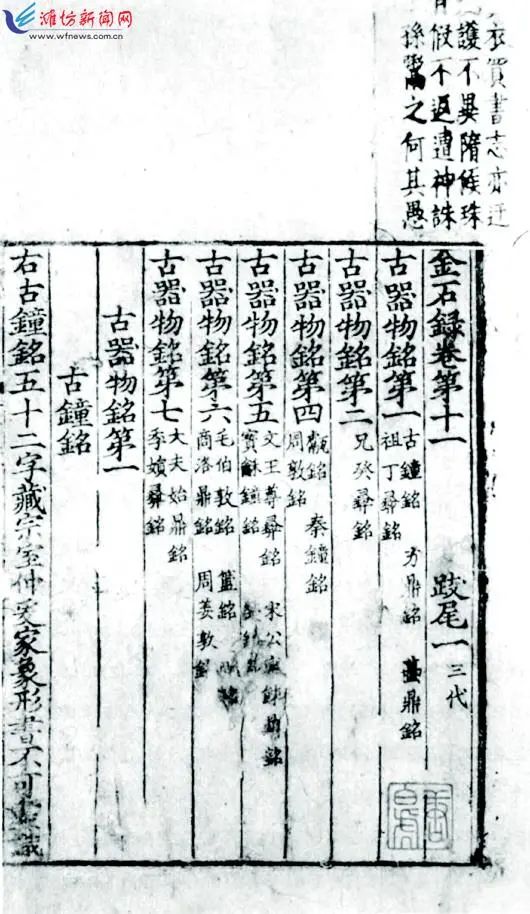 潍坊新闻网
www.wfnews.com.cn
衣買書志亦迂
護不異隋侯珠
假不返遭神誅
孫鬻之何其愚
金石録卷第十一 跋尾一 三代
古器物銘第一 古鐘銘 方鼎銘 鼎銘
祖丁彝銘
古器物銘第二 兄癸彝銘
古器物銘第四 甗銘 秦鐘銘
周敦銘
古器物銘第五 文王尊彝銘 宋公 銘
寶龢鐘銘
古器物銘第六 毛伯敦銘 簠銘
商洛鼎銘 周姜敦銘
古器物銘第七 大夫始鼎銘
季嬪彝銘
古器物銘第一
古鐘銘
右古鐘銘五十二字藏宗室仲爰家象形書不可盡識